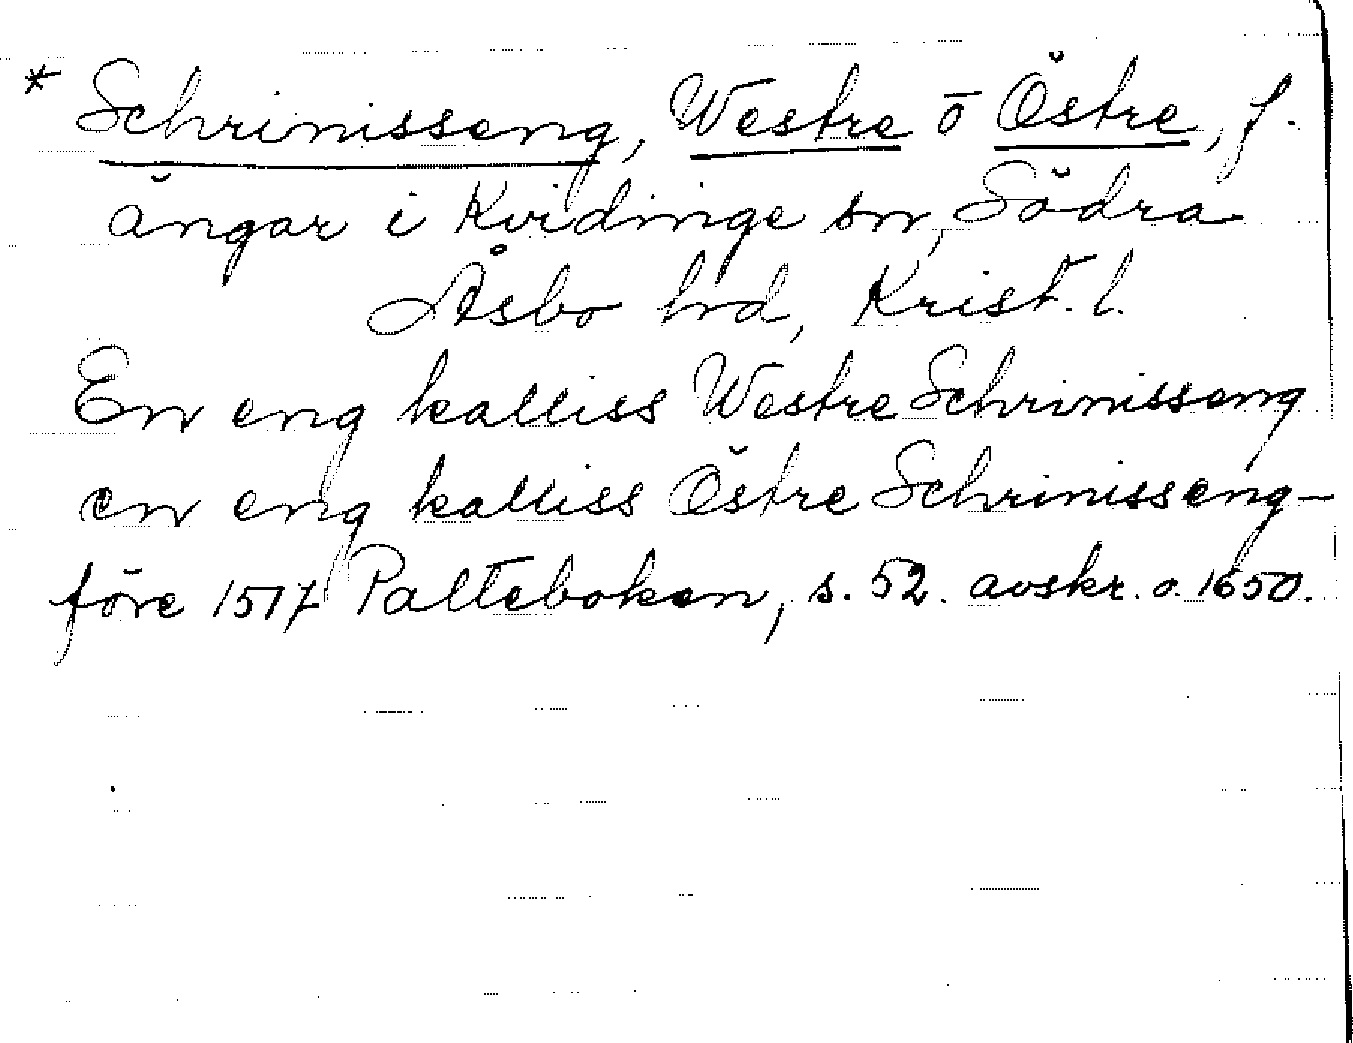 * Schrinisseng, Westre o Östre, f.
ängar i Kvidinge sn, Södra
Åsbo hrd, Krist. l.
En eng kalliss Westre Schrinisseng
en eng kalliss Östre Schrinisseng-
före 1517 Palteboken, s. 52. avskr. o. 1650.